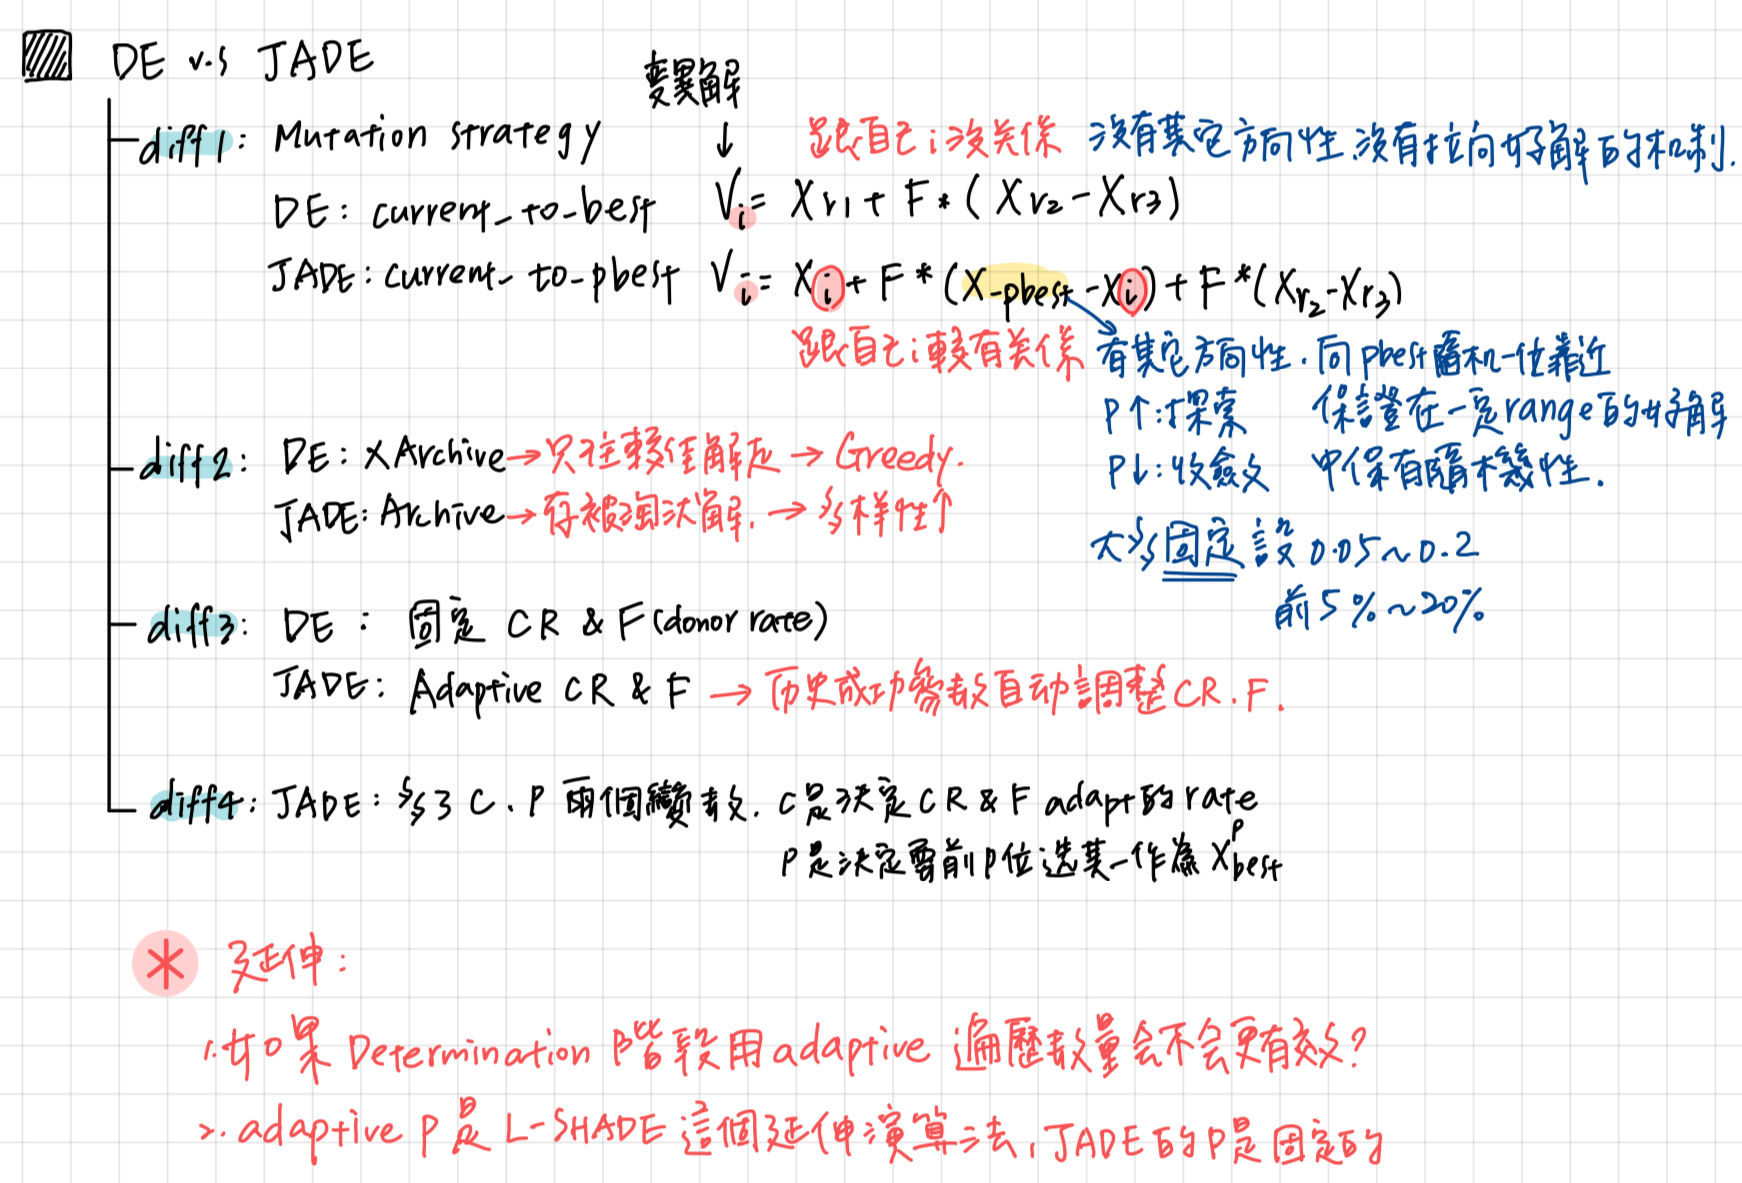 DE v.s JADE
變異解
↓
diff1: Mutation strategy
跟自己i沒关係 沒有其它方向性,沒有拉向好解的机制.
DE: current_to_best Vi = Xr1 + F * (Xr2 - Xr3)
JADE: current_to_pbest Vi = Xi + F * (X_pbest - Xi) + F * (Xr2 - Xr3)
跟自己i較有关係
有其它方向性.向pbest隨机一位靠近
P↑:探索 保證在一定range的好解
P↓:收斂 中保有隨機性.
大多固定設 0.05~0.2
前5%~20%
diff2: DE: x Archive → 只往較佳解走 → Greedy.
JADE: Archive → 存被淘汰解. → 多样性↑
diff3: DE : 固定 CR & F (donor rate)
JADE: Adaptive CR & F → 历史成功參数自动調整CR.F.
diff4: JADE: 多了 C、P 兩個變數. C是決定 CR & F adapt的rate
P是決定要前P位选其一作為 X^p_best
* 延伸:
1.如果 Determination 階段用adaptive 遍歷数量会不会更有效?
2. adaptive P 是 L-SHADE 這個延伸演算法,JADE的P是固定的